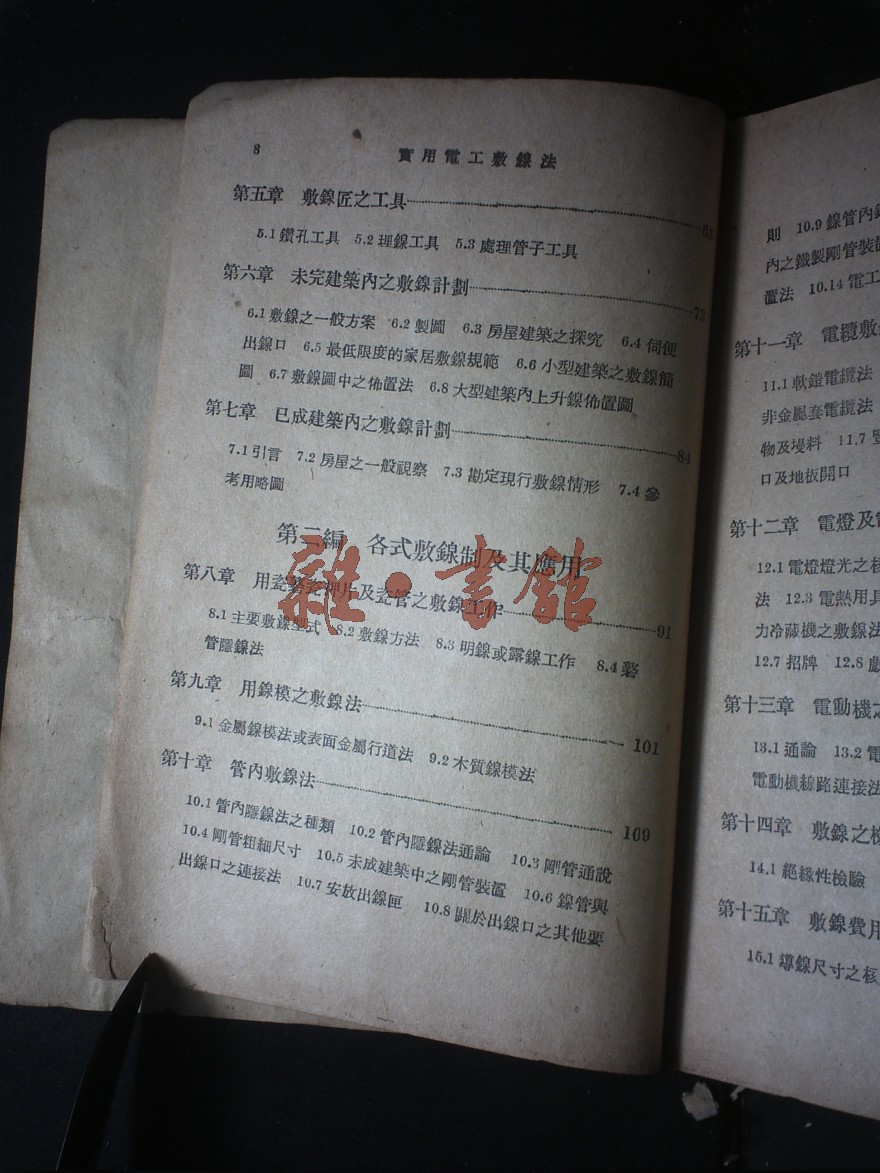 8
實用電工敷線法
第五章 敷線匠之工具 65
5.1 鑽孔工具 5.2 理線工具 5.3 處理管子工具
第六章 未完建築內之敷線計劃 73
6.1 敷線之一般方案 6.2 製圖 6.3 房屋建築之探究 6.4 伺便
出線口 6.5 最低限度的家居敷線規範 6.6 小型建築之敷線簡
圖 6.7 敷線圖中之佈置法 6.8 大型建築內上升線佈置圖
第七章 已成建築內之敷線計劃 84
7.1 引言 7.2 房屋之一般視察 7.3 勘定現行敷線情形 7.4 參
考用略圖
第二編 各式敷線制及其應用
第八章 用瓷礬瓷押片及瓷管之敷線工作 91
8.1 主要敷線型式 8.2 敷線方法 8.3 明線或露線工作 8.4 礬
管隱線法
第九章 用線模之敷線法 101
9.1 金屬線模法或表面金屬行道法 9.2 木質線模法
第十章 管內敷線法 109
10.1 管內隱線法之種類 10.2 管內隱線法通論 10.3 剛管通說
10.4 剛管粗細尺寸 10.5 未成建築中之剛管裝置 10.6 線管與
出線口之連接法 10.7 安放出線匣 10.8 關於出線口之其他要
則 10.9 線管內
內之鐵製剛管裝
置法 10.14 電工
第十一章 電纜敷
11.1 軟鎧電纜法
非金屬套電纜法
物及墁料 11.7
口及地板開口
第十二章 電燈及
12.1 電燈燈光之
法 12.3 電熱用具
力冷藏機之敷線法
12.7 招牌 12.8
第十三章 電動機之
13.1 通論 13.2 電
電動機線路連接法
第十四章 敷線之檢
14.1 絕緣性檢驗
第十五章 敷線費用
15.1 導線尺寸之核
雜·書館